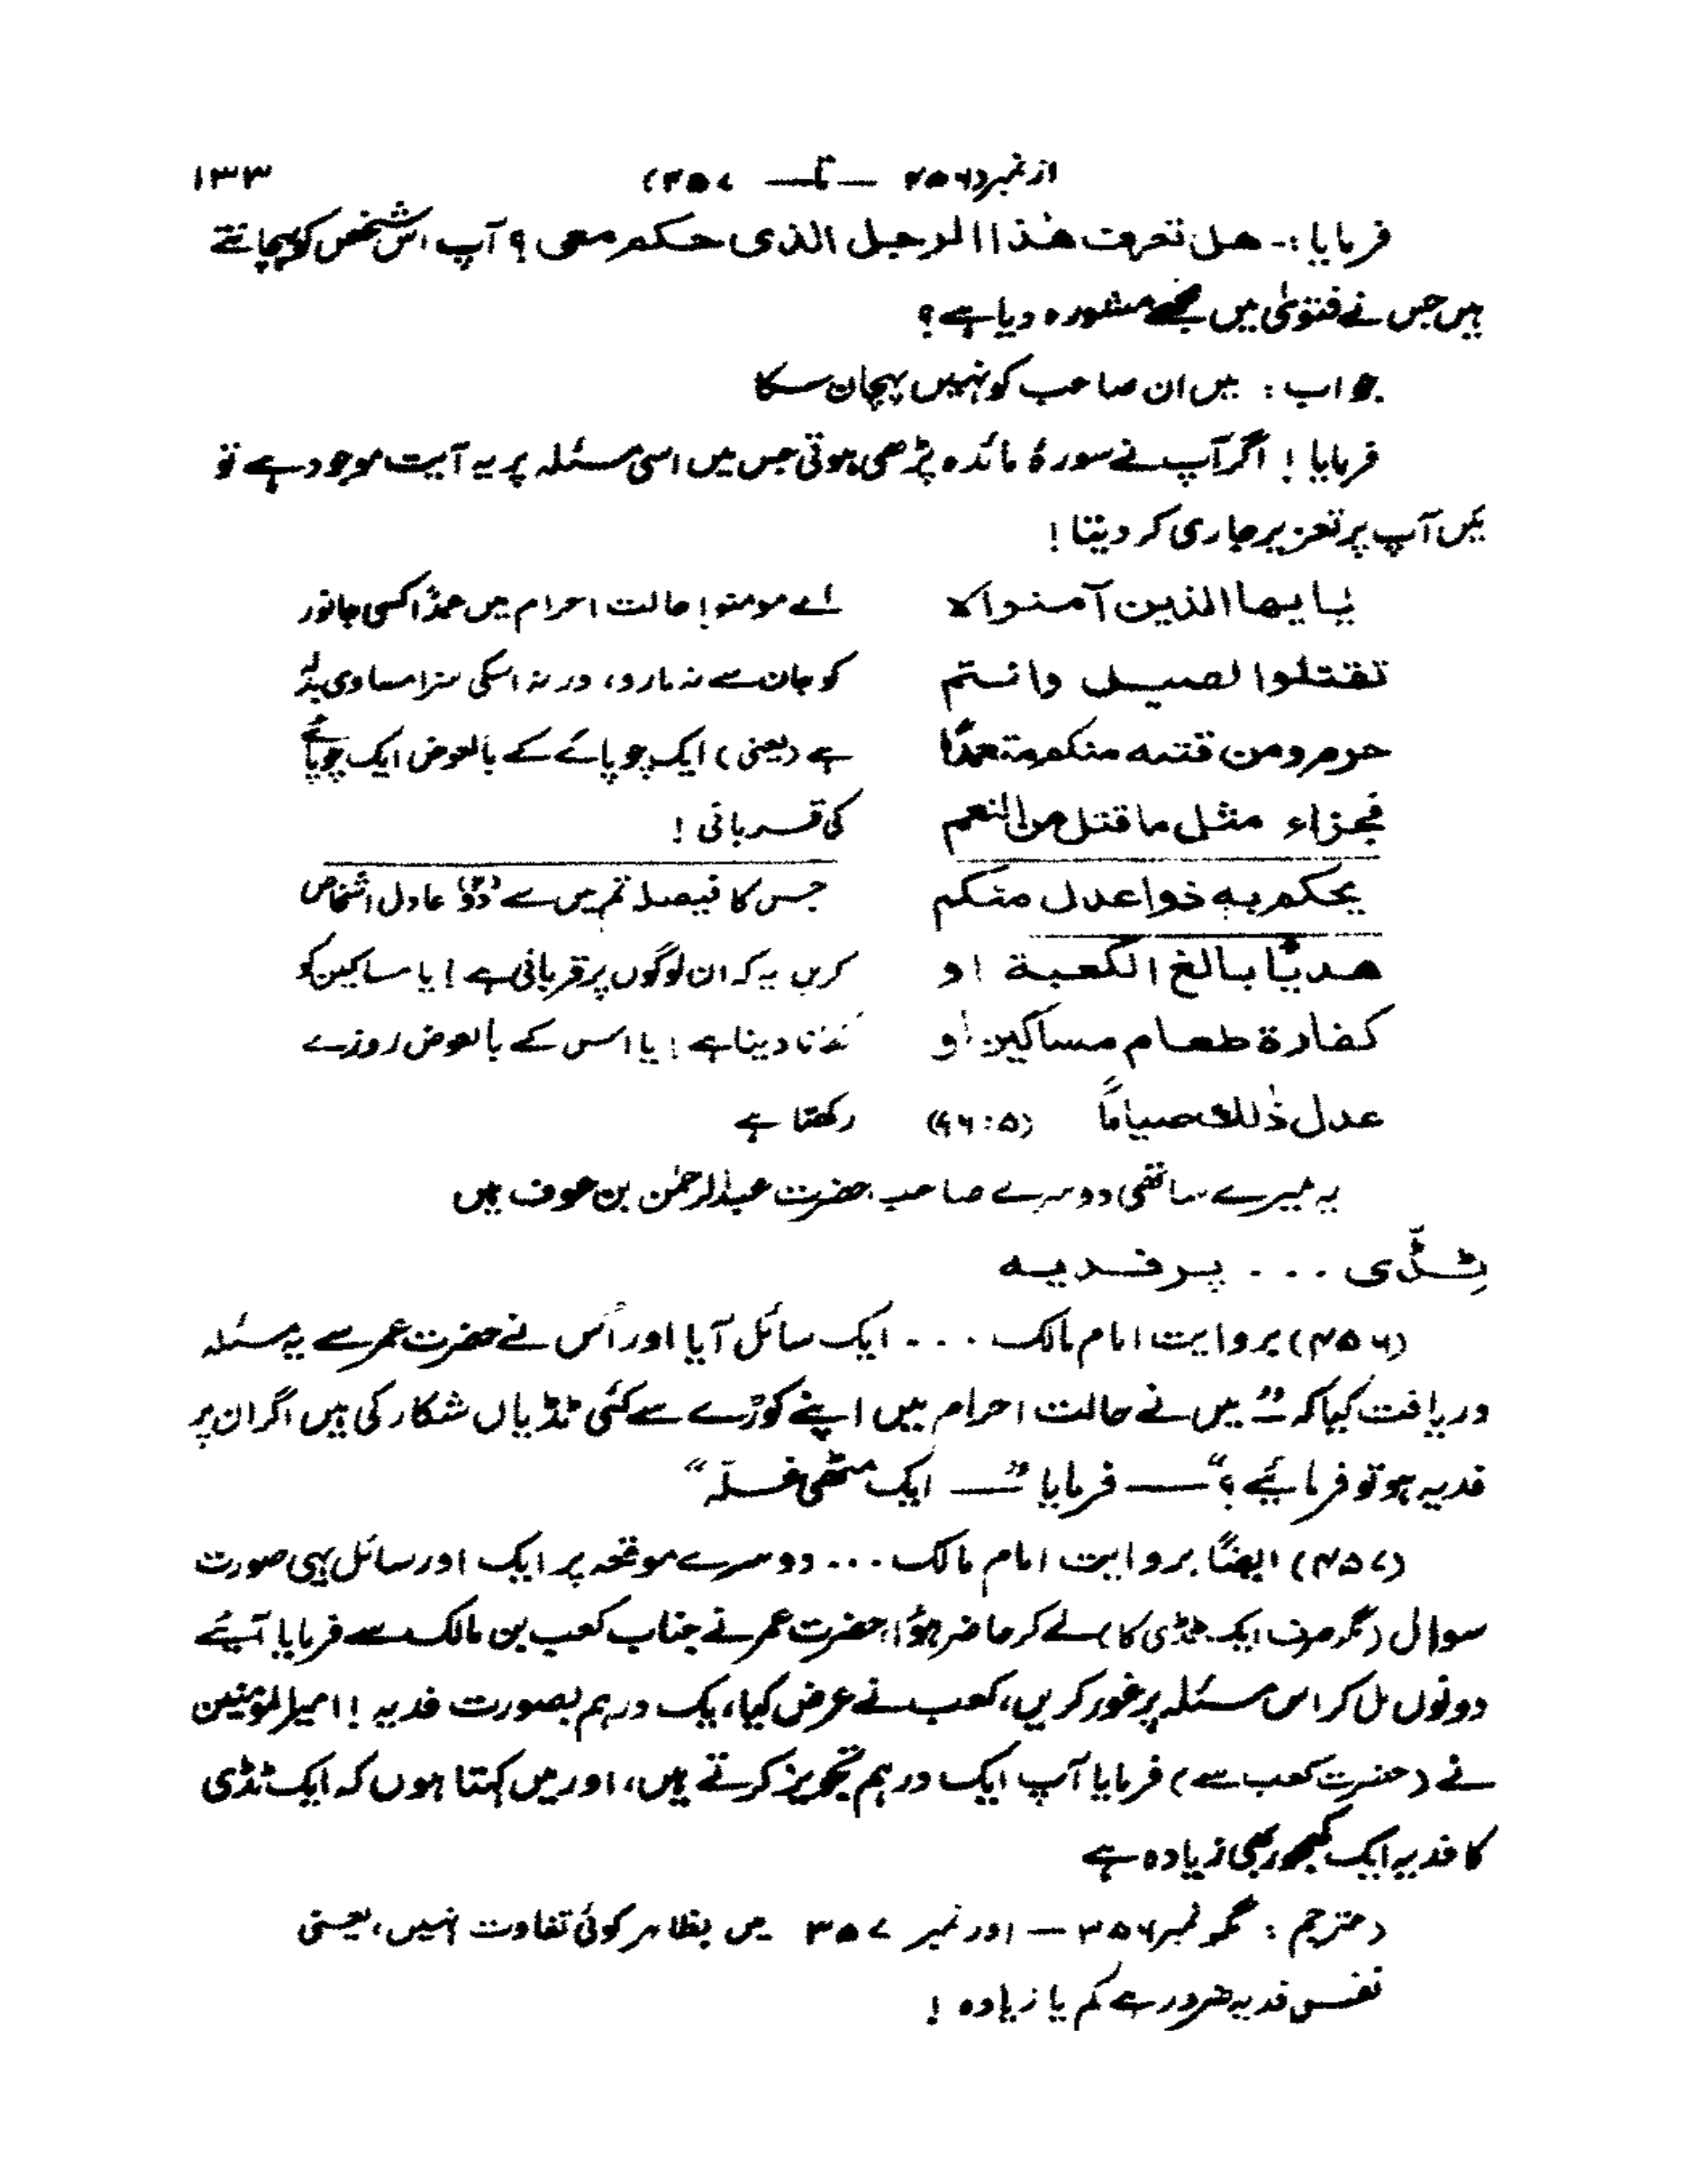 از نمبر (۴۵۶ — تا — ۴۵۷) ۱۳۳
فرمایا :۔ ھل تعرف ھٰذا الرجل الذی حکم معی ؟ آپ اس شخص کو پہچانتے
ہیں جس نے فتویٰ میں مجھے مشورہ دیا ہے ؟
جواب : میں ان صاحب کو نہیں پہچان سکا
فرمایا ! اگر آپ نے سورۂ مائدہ پڑھی ہوتی جس میں اسی مسئلہ پر یہ آیت موجود ہے تو
میں آپ پر تعزیر جاری کر دیتا !
یٰایھا الذین آمنوا لا اے مومنو! حالت احرام میں عمدًا کسی جانور
تقتلوا لصید وانتم کو جان سے نہ مارو، ورنہ اسکی سزا مساوی بدلہ
حرم ومن قتلہ منکم متعمدًا ہے (یعنی) ایک چوپائے کے بالعوض ایک چوپائے
فجزاء مثل ما قتل من النعم کی قربانی !
یحکم بہ ذوا عدل منکم جس کا فیصلہ تم میں سے دو عادل اشخاص
ھدیًا بالغ الکعبۃ او کریں یہ کہ ان لوگوں پر قربانی ہے ! یا مساکین کو
کفارۃ طعام مساکین او دینا ہے ! یا اس کے بالعوض روزے
عدل ذٰلک صیامًا (۵:۹۶) رکھنا ہے
یہ میرے ساتھی دوسرے صاحب حضرت عبدالرحمٰن بن عوف ہیں
ٹِڈّی ... پر فدیہ
(۴۵۶) بروایت امام مالک ... ایک سائل آیا اور اُس نے حضرت عمر سے یہ مسئلہ
دریافت کیا کہ ” میں نے حالت احرام میں اپنے کوڑے سے کئی ٹڈیاں شکار کی ہیں اگر ان پر
فدیہ ہو تو فرمائیے ؟“ — فرمایا ” — ایک مٹھی غلّہ “
(۴۵۷) ایضًا بروایت امام مالک ... دوسرے موقعہ پر ایک اور سائل یہی صورت
سوال (مگر صرف ایک ٹڈی کا) لے کر حاضر ہؤا، حضرت عمر نے جناب کعب بن مالک سے فرمایا آئیے
دونوں مل کر اس مسئلہ پر غور کریں، کعب نے عرض کیا، یک درہم بصورت فدیہ ! امیرالمؤمنین
نے (حضرت کعب سے) فرمایا آپ ایک درہم تجویز کرتے ہیں، اور میں کہتا ہوں کہ ایک ٹڈی
کا فدیہ ایک کھجور بھی زیادہ ہے
(مترجم : مگر نمبر ۳۵۶ — اور نمبر ۳۵۷ میں بظاہر کوئی تفاوت نہیں، یعنی
نفس فدیہ ضرور ہے کم یا زیادہ !